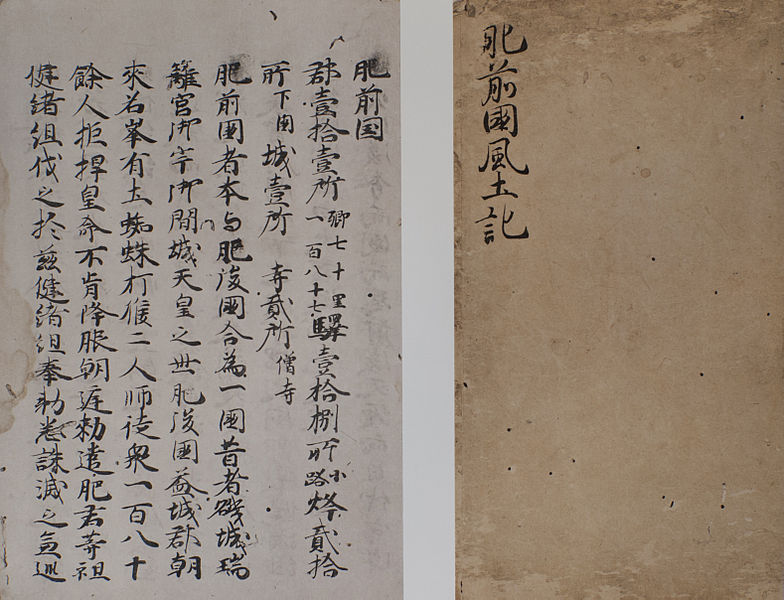 肥前國風土記
肥前国
郡壹拾壹所 郷七十 里一百八十七 驛壹拾捌所 小路 烽貳拾
所 下國 城壹所 寺貳所 僧寺
肥前國者本与肥後國合為一國昔者磯城瑞
籬宮御宇御間城天皇之世肥後國益城郡朝
来名峯有土蜘蛛打猴二人師徒衆一百八十
餘人拒捍皇命不肯降服朝庭勅遣肥君等祖
健緒組伐之於茲健緒組奉勅悉誅滅之兼巡